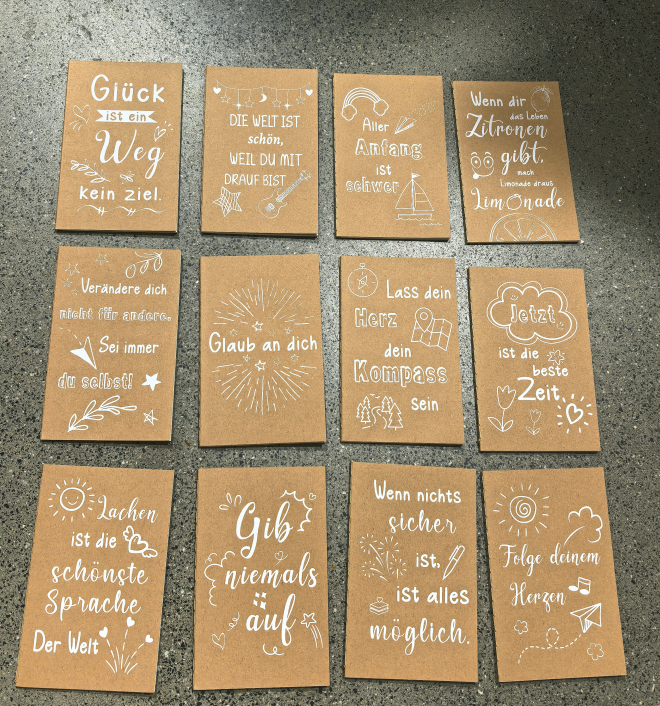 Glück
ist ein
Weg
kein Ziel.
DIE WELT IST
schön,
WEIL DU MIT
DRAUF BIST
Aller
Anfang
ist
schwer
Wenn dir
das Leben
Zitronen
gibt,
mach
Limonade draus
Limonade
Verändere dich
nicht für andere.
Sei immer
du selbst!
Glaub an dich
Lass dein
Herz
dein
Kompass
sein
Jetzt
ist die
beste
Zeit
Lachen
ist die
schönste
Sprache
Der Welt
Gib
niemals
auf
Wenn nichts
sicher
ist,
ist alles
möglich.
Folge deinem
Herzen